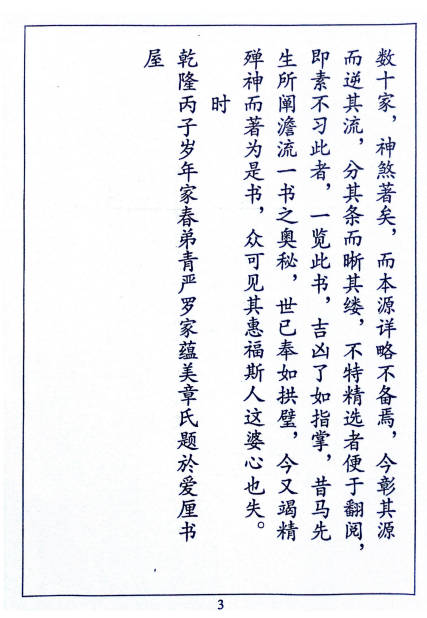 数十家，神煞著矣，而本源详略不备焉，今彰其源
而逆其流，分其条而晰其缕，不特精选者便于翻阅，
即素不习此者，一览此书，吉凶了如指掌，昔马先
生所阐澹流一书之奥秘，世已奉如拱璧，今又竭精
殚神而著为是书，众可见其惠福斯人这婆心也失。
时
乾隆丙子岁年家春弟青严罗家蕴美章氏题於爱厘书
屋
3